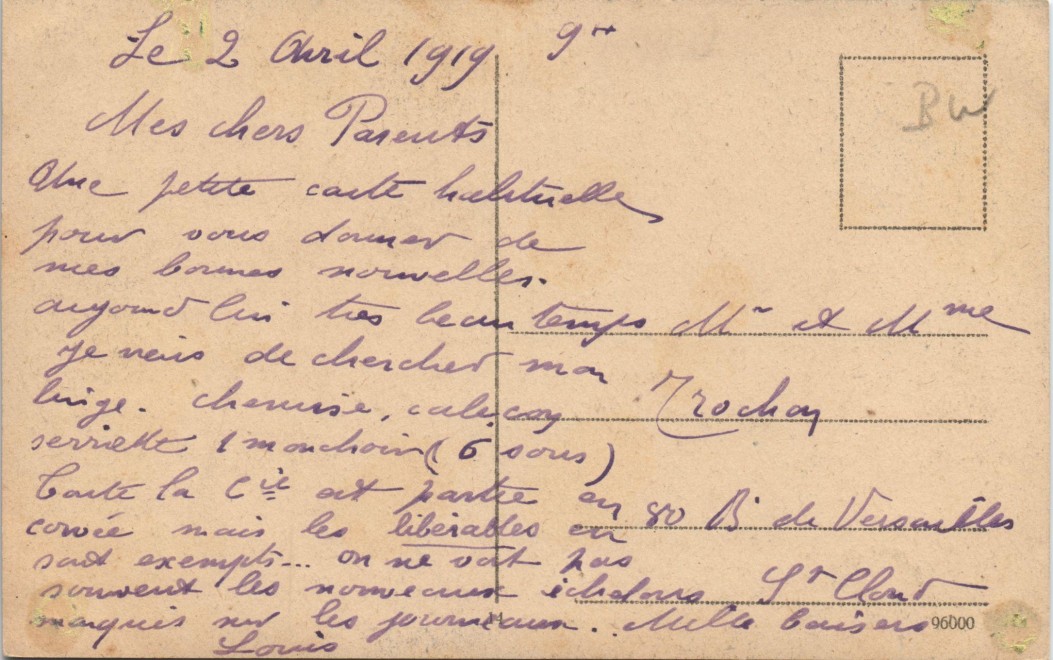 Le 2 Avril 1919 9 H
BW
Mes chers Parents
Une petite carte habituelle
pour vous donner de
mes bonnes nouvelles.
aujourd'hui tres beau temps
Je viens de chercher mon
linge. chemise, caleçon
serviette 1 mouchoir (6 sous)
Toute la Cie est partie en
corvée mais les libérables en
sont exempts... on ne voit pas
souvent les nouveaux échelons
marqués sur les journaux. Mille baisers
Louis
Mr et Mme
Trochon
80 Bd de Versailles
St Cloud
96000